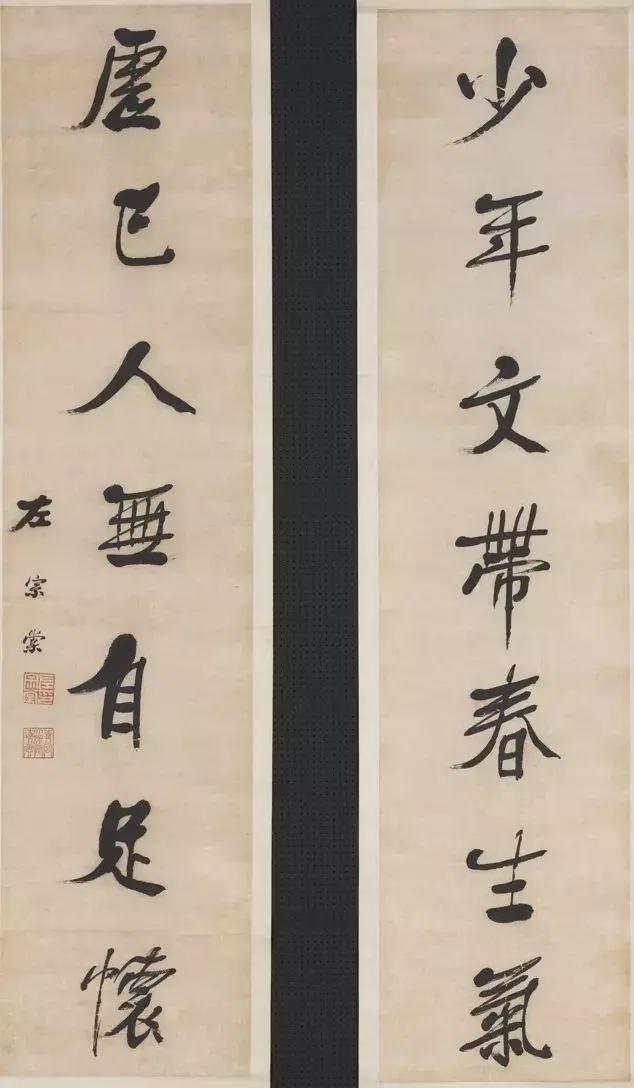 少年文帶春生氣
虛己人無自足懷
左宗棠